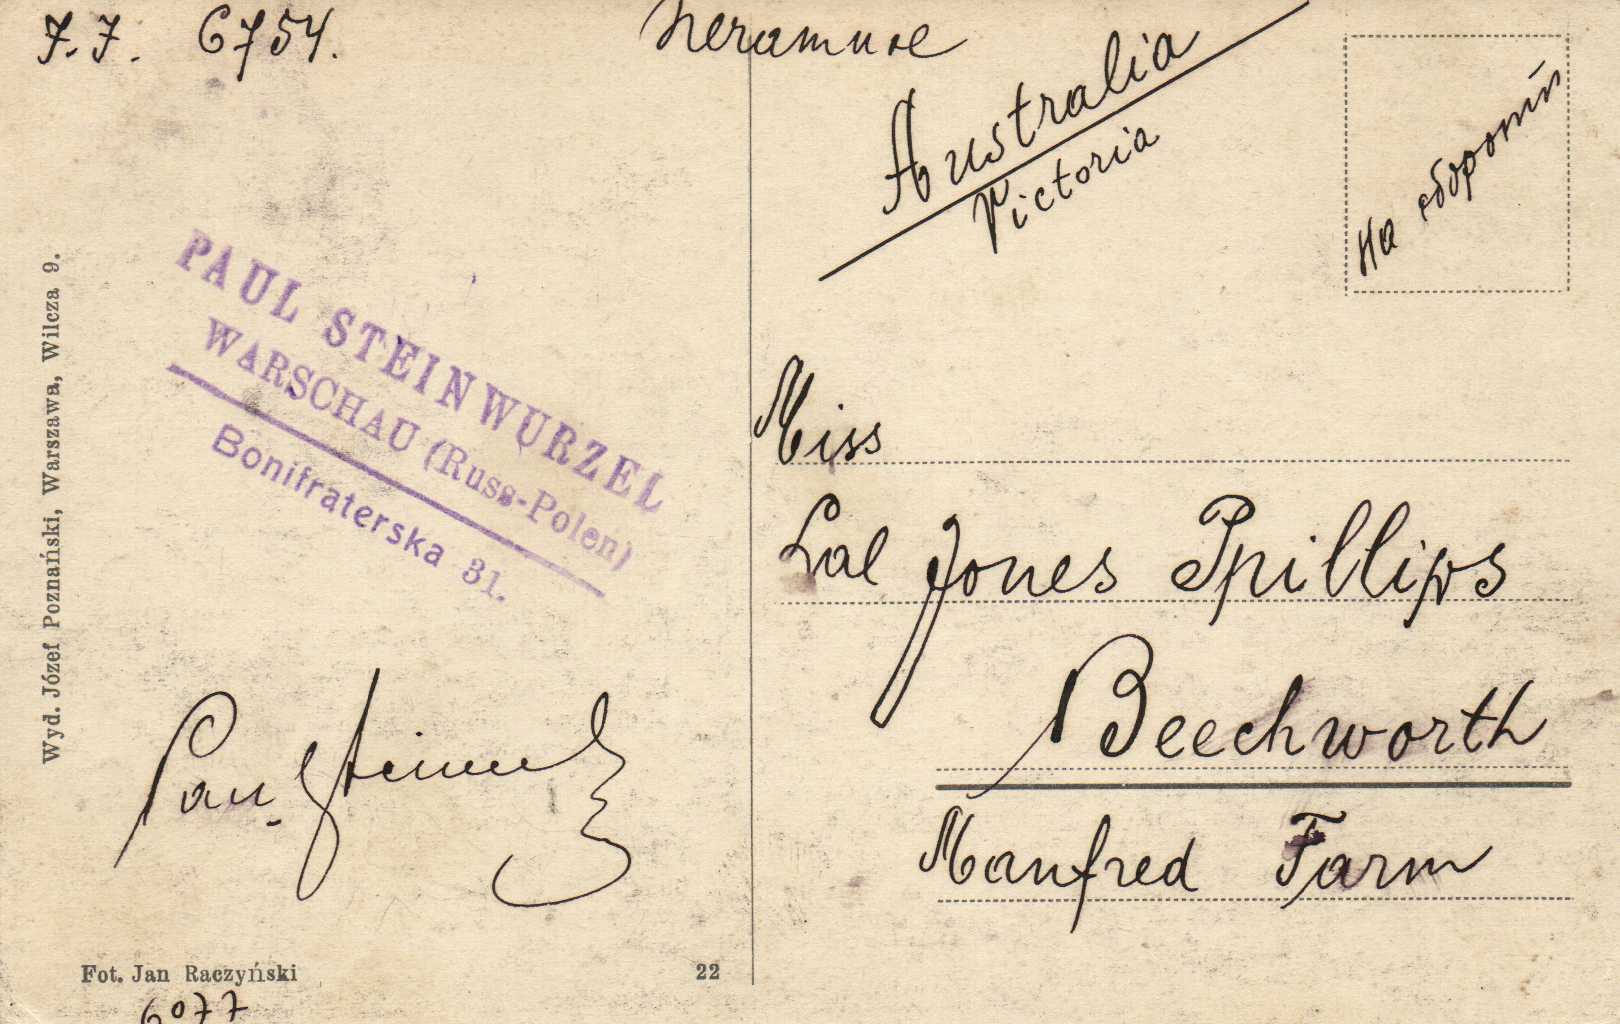 7.7. 6754.
Печатное
Australia
Victoria
На оборотѣ
Wyd. Józef Poznański, Warszawa, Wilcza 9.
PAUL STEINWURZEL
WARSCHAU (Russ-Polen)
Bonifraterska 31.
Miss
Lal Jones Phillips
Beechworth
Manfred Farm
Fot. Jan Raczyński
22
6077